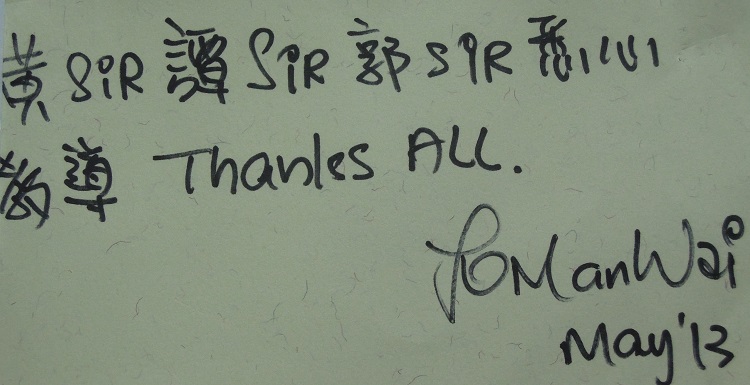 黃 SiR 譚 SiR 郭 SiR 悉心
教導 Thanks ALL.
Yo Man Wai
May '13